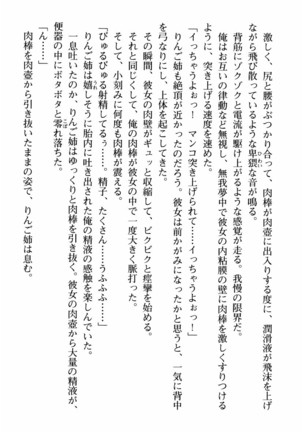 激しく、尻と腰がぶつかり合って、肉棒が肉壺に出入りする度に、潤滑液が飛沫を上げ
ながら飛び散っているような卑猥な音が鳴る。
背筋にゾクゾクと電流が駆け上がるような感覚が走る。我慢の限界だ。
俺はお互いの律動など無視し、無我夢中で彼女の内粘膜の壁に肉棒を激しくすりつける
ように、突き上げる速度を速めた。
「イっちゃうよぉっ！　マンコ突き上げられて――イっちゃうよぉっ！」
りんご姉も絶頂が近かったのだろう。彼女は前かがみになったかと思うと、一気に背中
を弓なりにし、上体を起こしてきた。
その瞬間、彼女の肉壁がギュっと収縮して、ビクビクと痙攣を始める。
それと同じくして、俺の肉棒が彼女の中で一度大きく脈打った。
そして、小刻みに何度も肉棒が震える。
「びゅるびゅる射精してるぅ……。精子、たくさん……うふふふ……」
りんご姉は嬉しそうに胎内に吐き出された俺の精液の感触を楽しんでいた。
一息吐いたのか、りんご姉はゆっくりと肉棒を引き抜く。彼女の肉壺から大量の精液が、
便器の中にボタボタと零れ落ちた。
「ん……ん……」
肉棒を肉壺から引き抜いたままの姿で、りんご姉は息む。